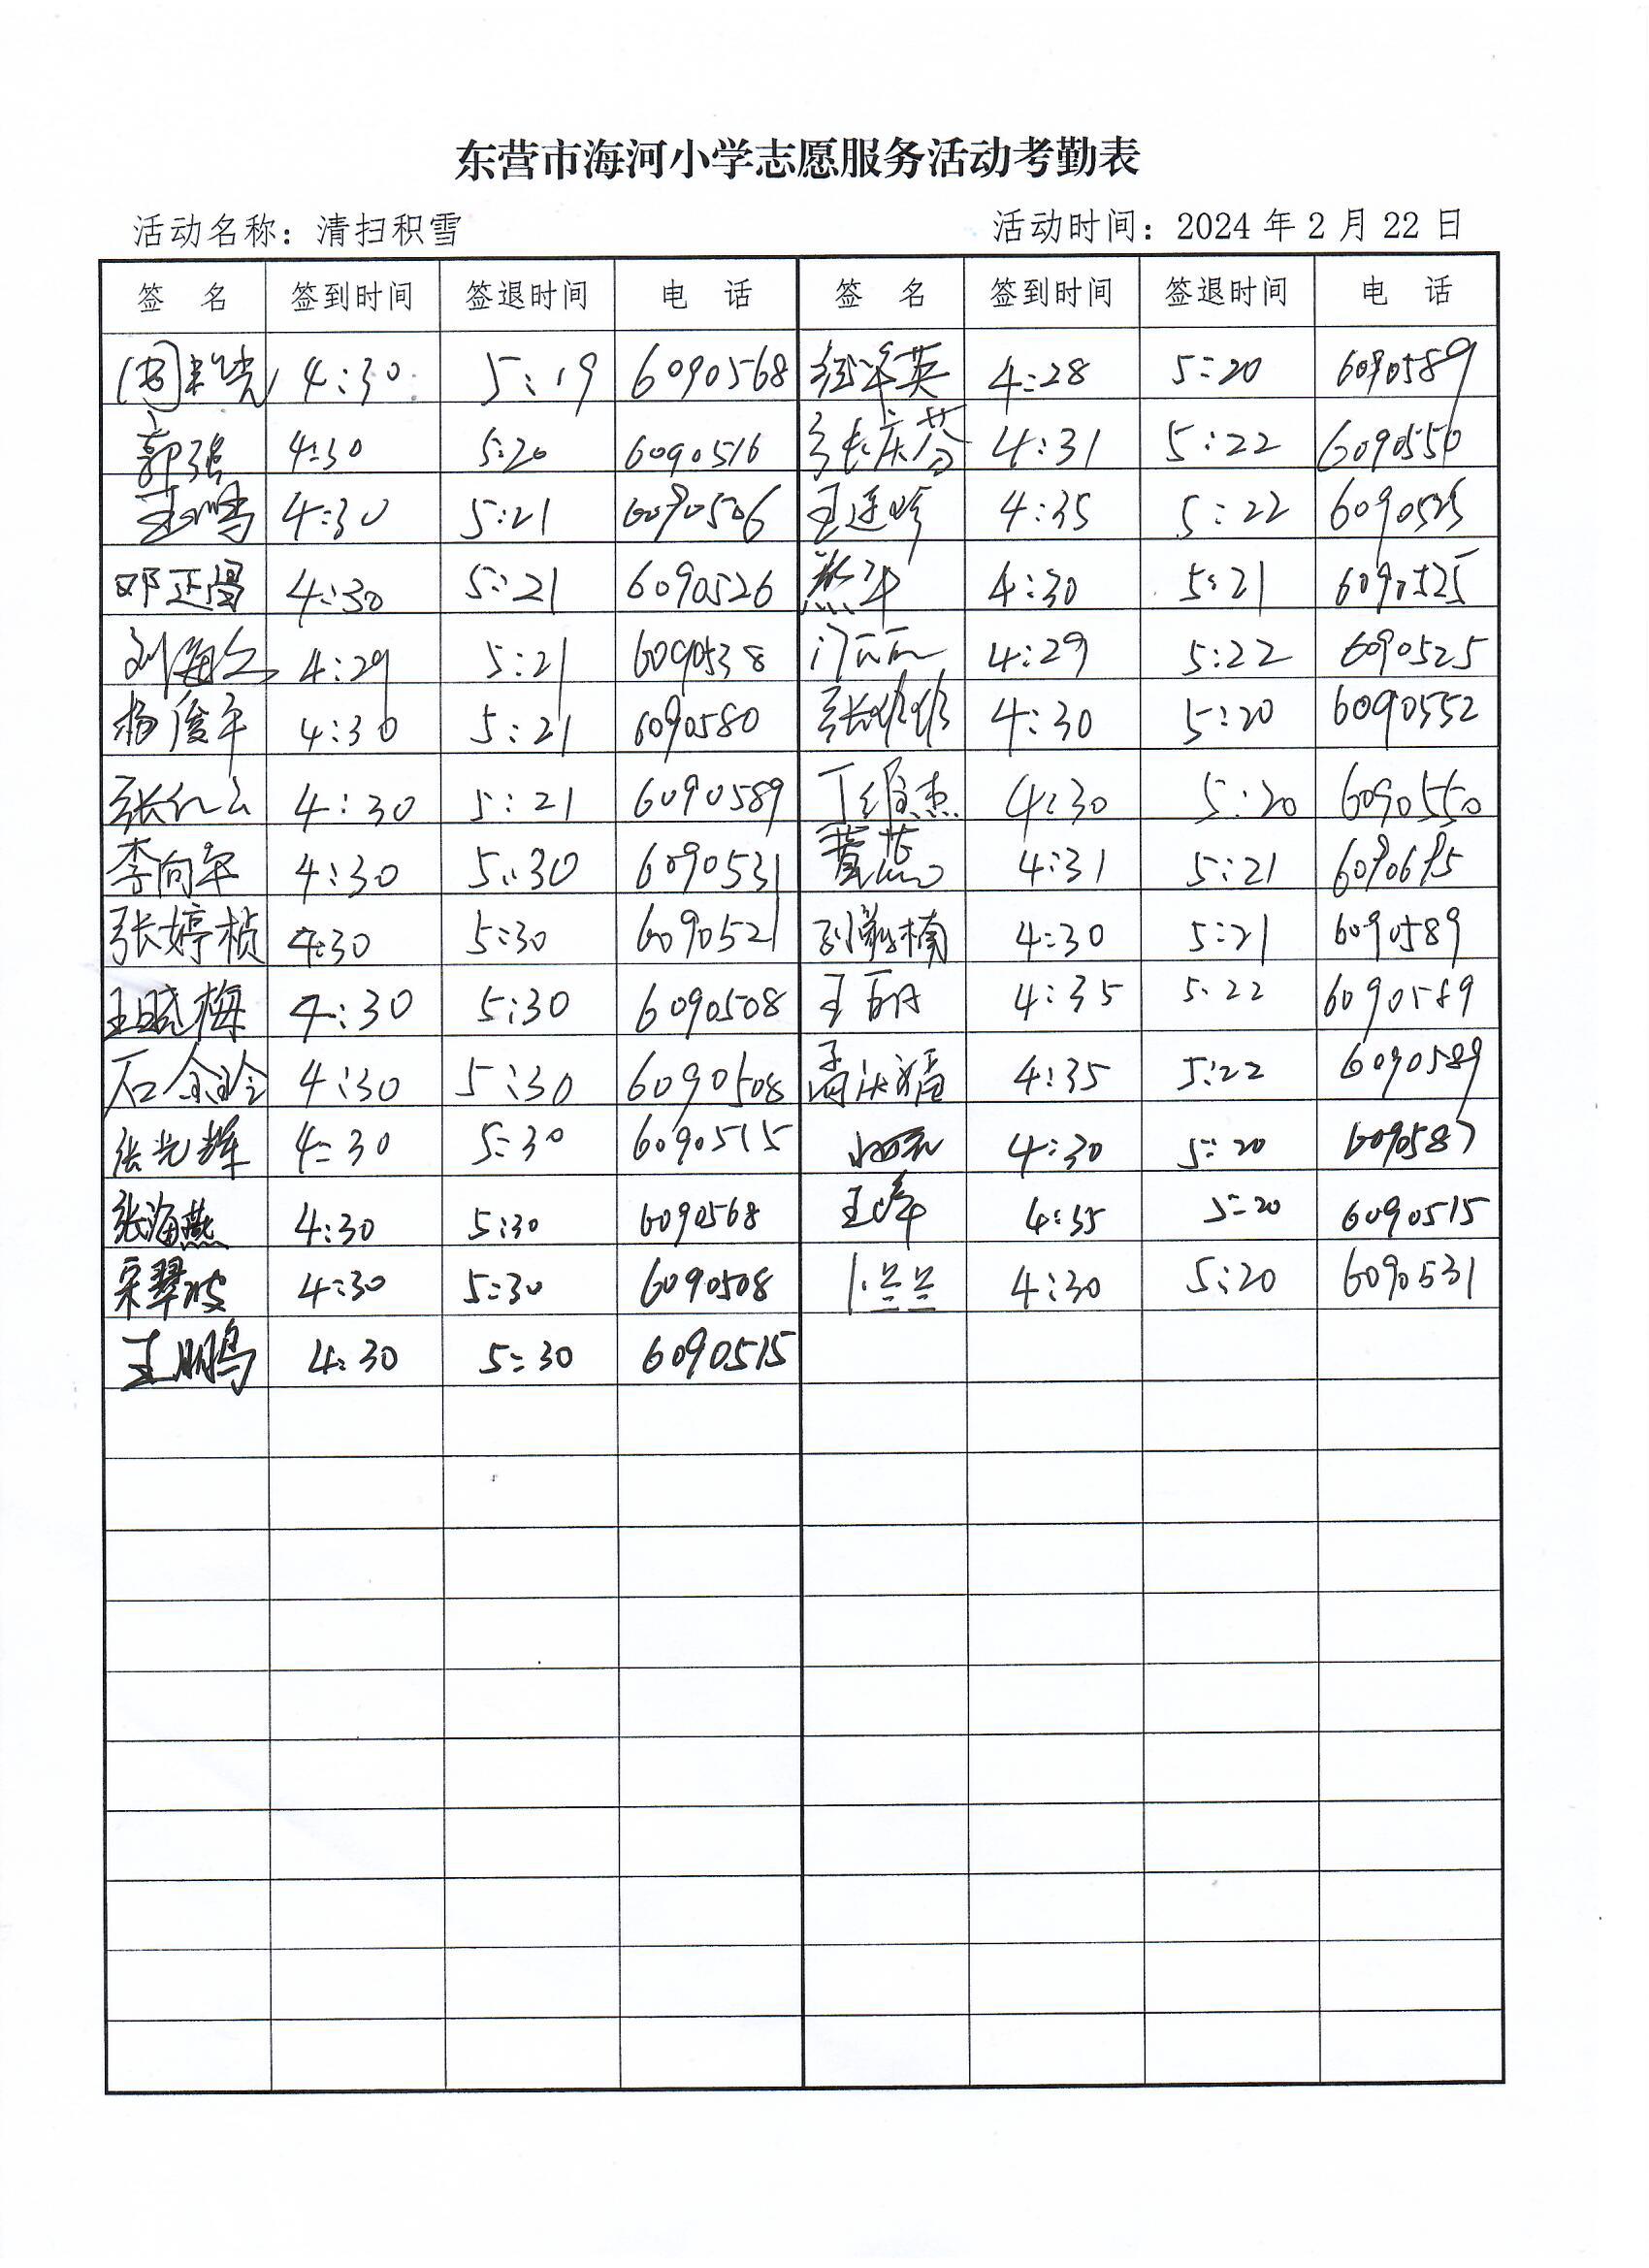 东营市海河小学志愿服务活动考勤表
活动名称：清扫积雪 活动时间：2024年2月22日
签 名 签到时间 签退时间 电 话 签 名 签到时间 签退时间 电 话
4:30 5:19 6090568 4:28 5:20 6090589
郭强 4:30 5:20 6090516 4:31 5:22 6090550
4:30 5:21 6090506 4:35 5:22 6090525
邓正昌 4:30 5:21 6090526 4:30 5:21 6090525
4:29 5:21 6090538 4:29 5:22 6090525
杨俊平 4:30 5:21 6090580 4:30 5:20 6090552
4:30 5:21 6090589 丁维杰 4:30 5:20 6090550
李向军 4:30 5:30 6090531 4:31 5:21
张婷桢 4:30 5:30 6090521 4:30 5:21 6090589
王晓梅 4:30 5:30 6090508 4:35 5:22 6090589
石余玲 4:30 5:30 6090508 4:35 5:22 6090589
张光辉 4:30 5:30 6090515 4:30 5:20 6090587
张海燕 4:30 5:30 6090568 王峰 4:35 5:20 6090515
宋翠波 4:30 5:30 6090508 卜兰兰 4:30 5:20 6090531
王鹏 4:30 5:30 6090515